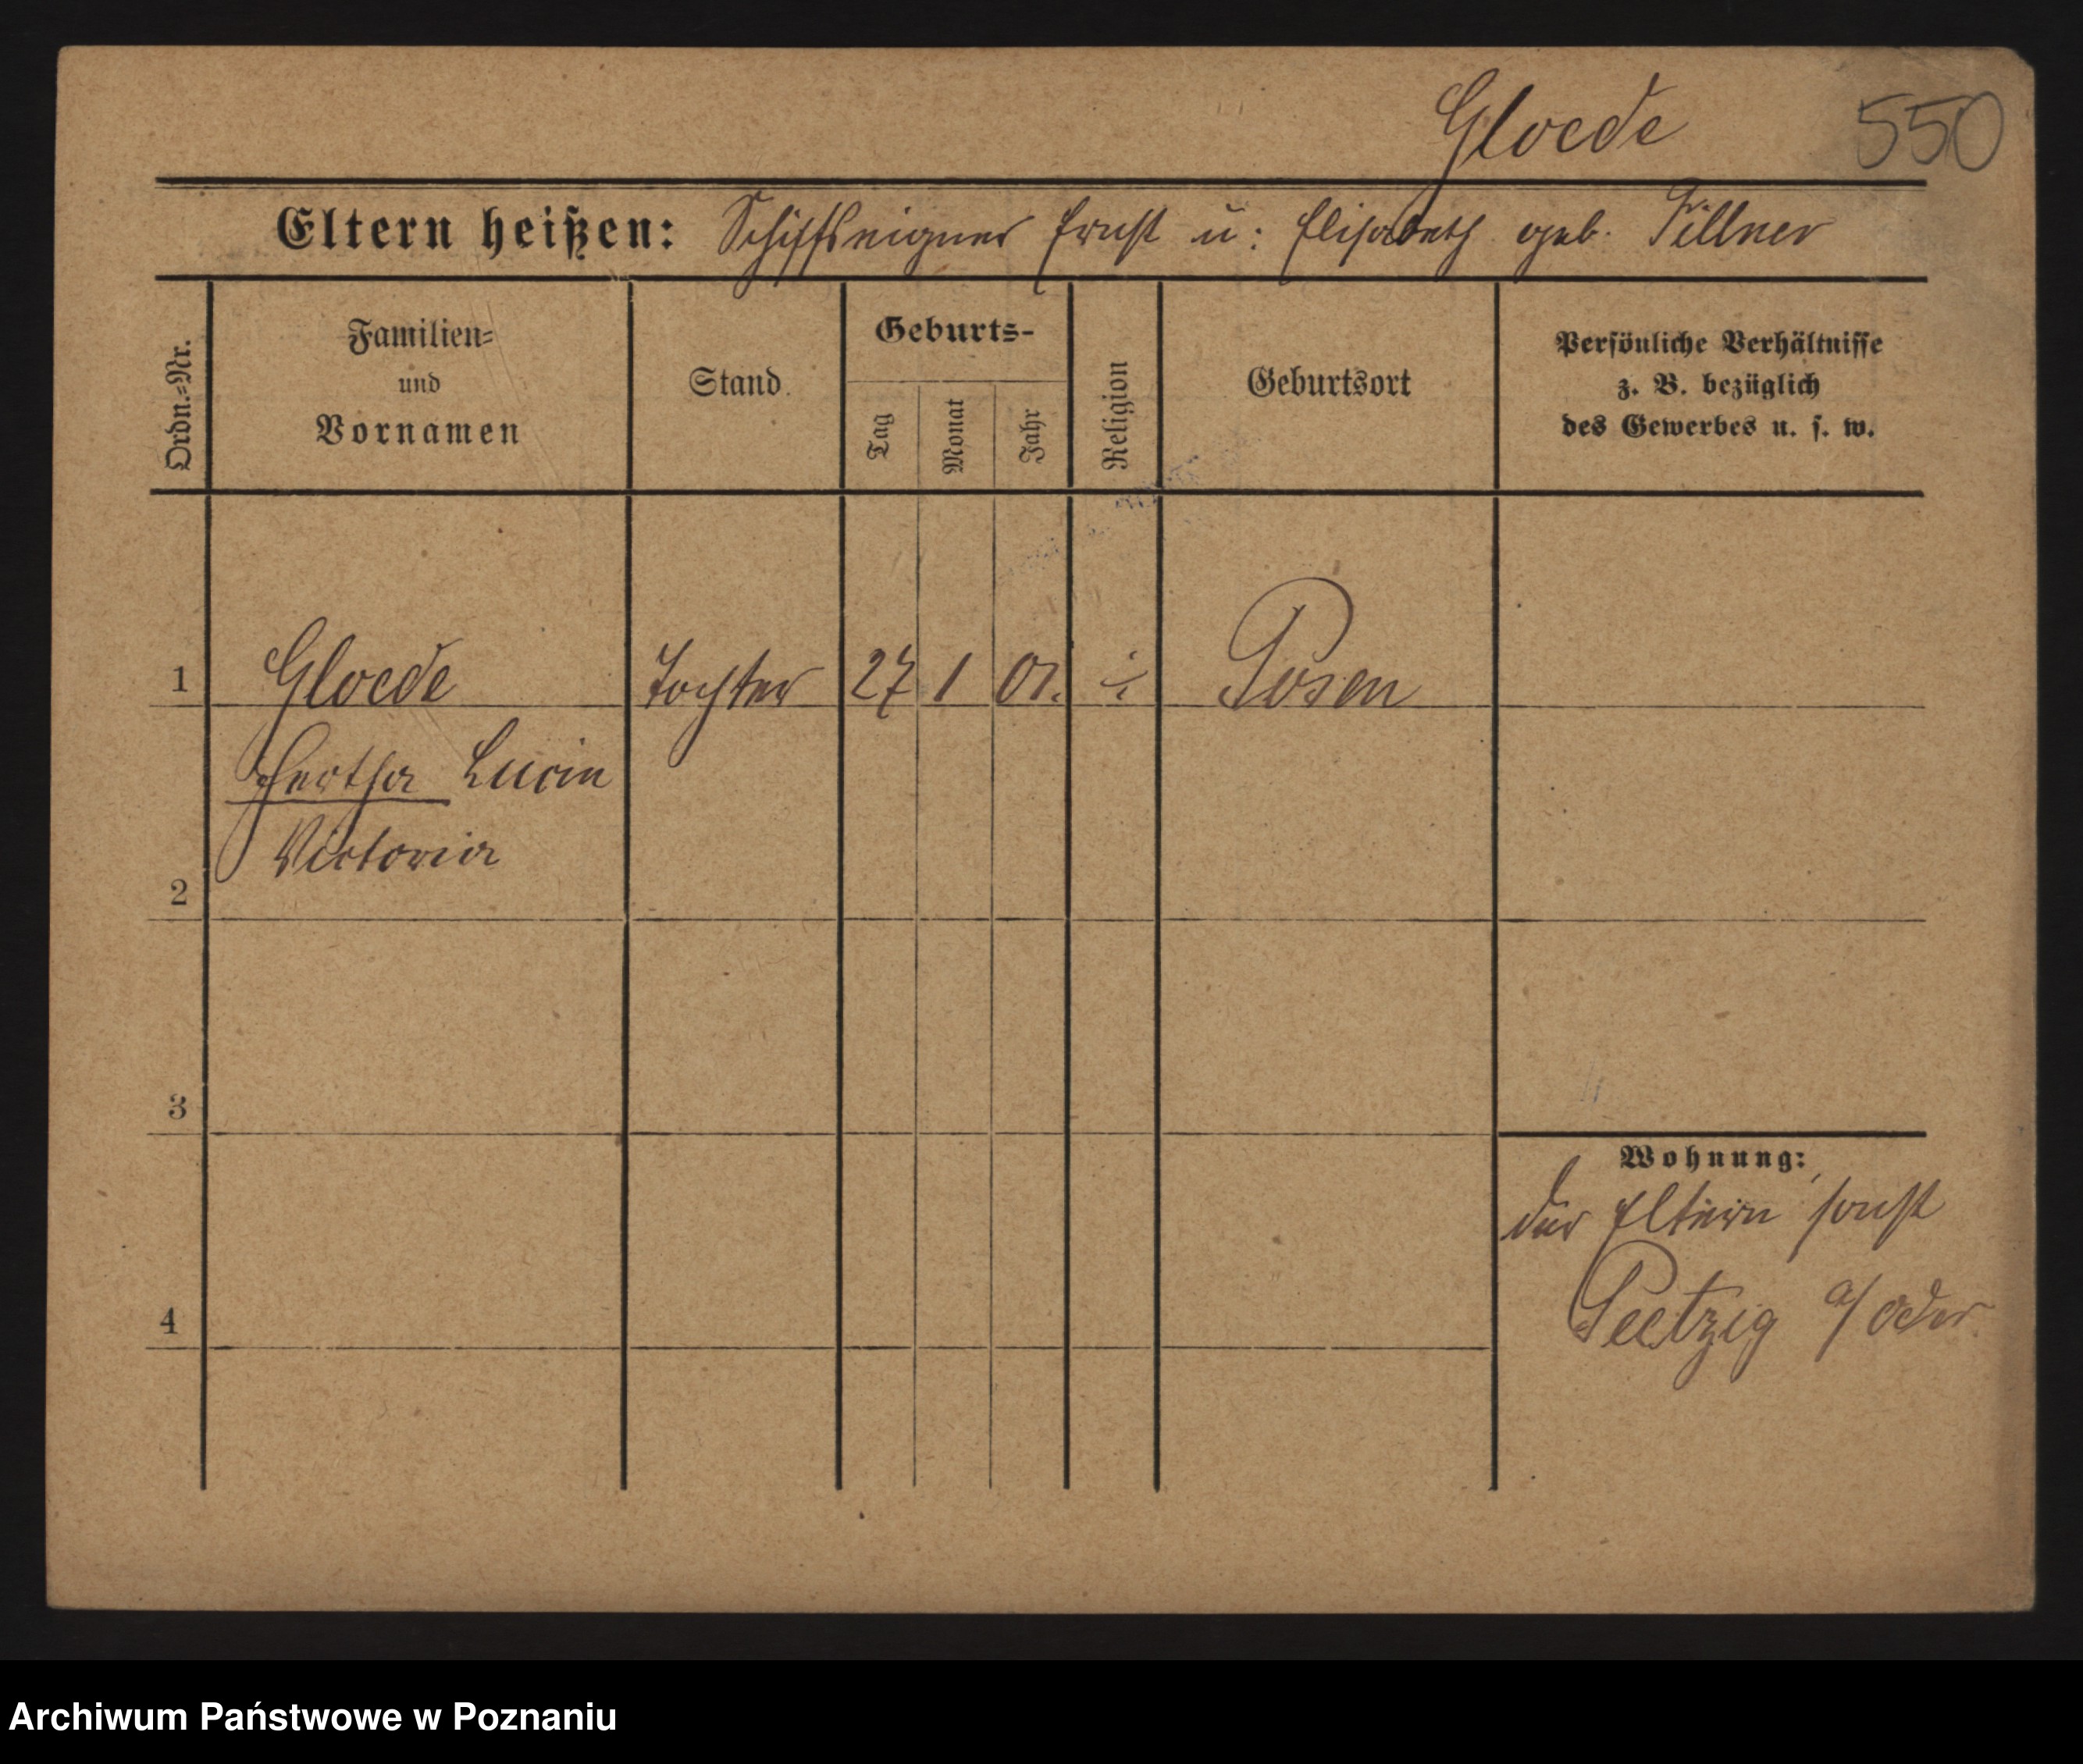 Gloede
550
Eltern heißen: Schiffseigner Ernst u: Elisabeth geb. Tillner
Ordn.=Nr.
Familien=
und
Vornamen
Stand
Geburts=
Tag
Monat
Jahr
Religion
Geburtsort
Persönliche Verhältnisse
z. B. bezüglich
des Gewerbes u. s. w.
1 Gloede Tochter 27 1 01. Posen
Hertha Lucie
Victoria
2
3
Wohnung:
der Eltern sonst
Peetzig a/Oder
4
Archiwum Państwowe w Poznaniu